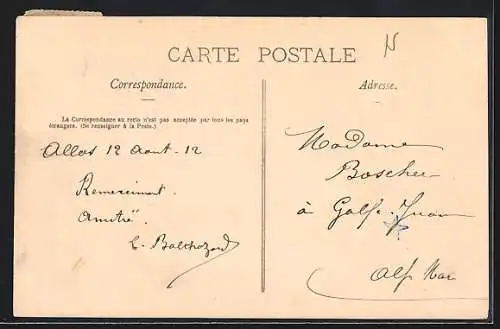 CARTE POSTALE
N
Correspondance.
Adresse.
La Correspondance au recto n'est pas acceptée par tous les pays
étrangers. (Se renseigner à la Poste.)
Allos 12 Aout - 12
Remerciment.
Amitié
L. Balthazard
Madame
Boscher
à Golfe-Juan
Alp Mar